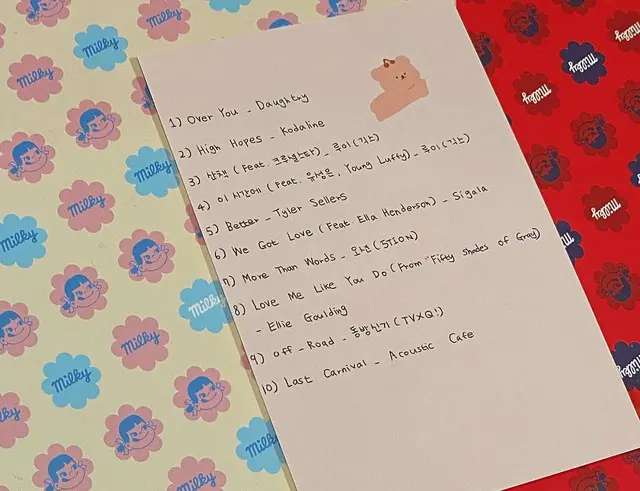 milky
milky
1) Over You - Daughtry
2) High Hopes - Kodaline
3) 산책 (Feat. 크루셜스타) - 루이(긱스)
4) 이 시간에 (Feat. 유성은, Young Luffy) - 루이(긱스)
5) Better - Tyler Sellers
6) We Got Love (Feat. Ella Henderson) - Sigala
7) More Than Words - 오션(5TION)
8) Love Me Like You Do (From "Fifty Shades of Grey)
- Ellie Goulding
9) Off - Road - 동방신기 (TVXQ!)
10) Last Carnival - Acoustic Cafe
milky
milky
milky
milky
milky
milky
milky
milky
milky
milky
milky